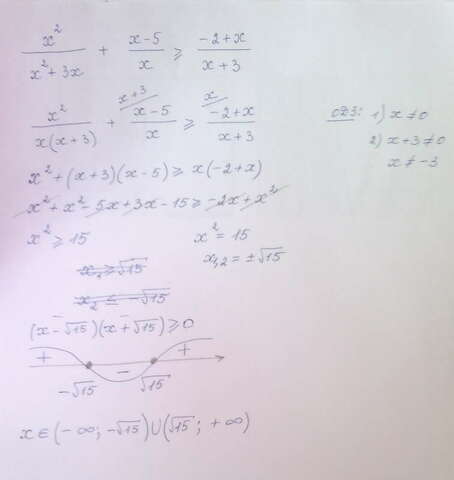 x²/(x² + 3x) + (x-5)/x ≥ (-2+x)/(x+3)
x²/(x(x+3)) + (x-5)/x ^(x+3) ≥ (-2+x)/(x+3) ^x
ОДЗ: 1) x ≠ 0
2) x+3 ≠ 0
x ≠ -3
x² + (x+3)(x-5) ≥ x(-2+x)
x² + x² - 5x + 3x - 15 ≥ -2x + x²
x² ≥ 15
x² = 15
x₁,₂ = ±√15
x₁ ≥ √15
x₂ ≤ -√15
(x - √15)(x + √15) ≥ 0
+ - +
-√15 √15
x ∈ (-∞; -√15) ∪ (√15; +∞)